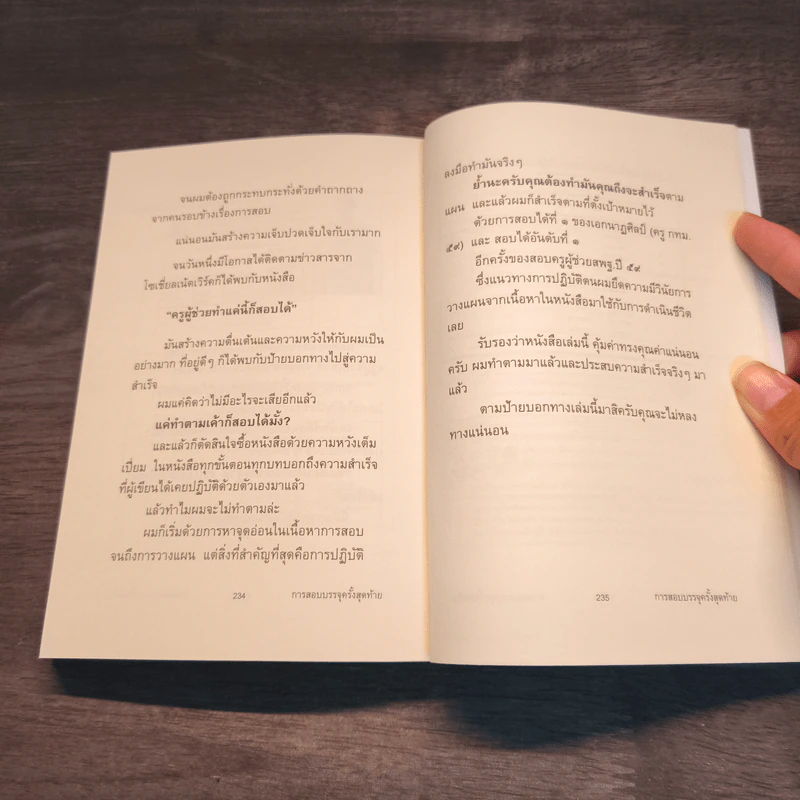 จนผมต้องถูกกระทบกระทั่งด้วยคำถากถาง
จากคนรอบข้างเรื่องการสอบ
แน่นอนมันสร้างความเจ็บปวดเจ็บใจกับเรามาก
จนวันหนึ่งมีโอกาสได้ติดตามข่าวสารจาก
โซเชี่ยลเน้ตเวิร์คก็ได้พบกับหนังสือ
“ครูผู้ช่วยทำแค่นี้ก็สอบได้”
มันสร้างความตื่นเต้นและความหวังให้กับผมเป็น
อย่างมาก ที่อยู่ดีๆ ก็ได้พบกับป้ายบอกทางไปสู่ความ
สำเร็จ
ผมแค่คิดว่าไม่มีอะไรจะเสียอีกแล้ว
แค่ทำตามเค้าก็สอบได้มั้ง?
และแล้วก็ตัดสินใจซื้อหนังสือด้วยความหวังเต็ม
เปี่ยม ในหนังสือทุกขั้นตอนทุกบทบอกถึงความสำเร็จ
ที่ผู้เขียนได้เคยปฏิบัติด้วยตัวเองมาแล้ว
แล้วทำไมผมจะไม่ทำตามล่ะ
ผมก็เริ่มด้วยการหาจุดอ่อนในเนื้อหาการสอบ
จนถึงการวางแผน แต่สิ่งที่สำคัญที่สุดคือการปฏิบัติ
234 การสอบบรรจุครั้งสุดท้าย
ลงมือทำมันจริงๆ
ย้ำนะครับคุณต้องทำมันคุณถึงจะสำเร็จตาม
แผน และแล้วผมก็สำเร็จตามที่ตั้งเป้าหมายไว้
ด้วยการสอบได้ที่ ๑ ของเอกนาฏศิลป์ (ครู กทม.
๕๙) และ สอบได้อันดับที่ ๑
อีกครั้งของสอบครูผู้ช่วยสพฐ.ปี ๕๙
ซึ่งแนวทางการปฏิบัติตนผมยึดความมีวินัยการ
วางแผนจากเนื้อหาในหนังสือมาใช้กับการดำเนินชีวิต
เลย
รับรองว่าหนังสือเล่มนี้ คุ้มค่าทรงคุณค่าแน่นอน
ครับ ผมทำตามมาแล้วและประสบความสำเร็จจริงๆ มา
แล้ว
ตามป้ายบอกทางเล่มนี้มาสิครับคุณจะไม่หลง
ทางแน่นอน
235 การสอบบรรจุครั้งสุดท้าย